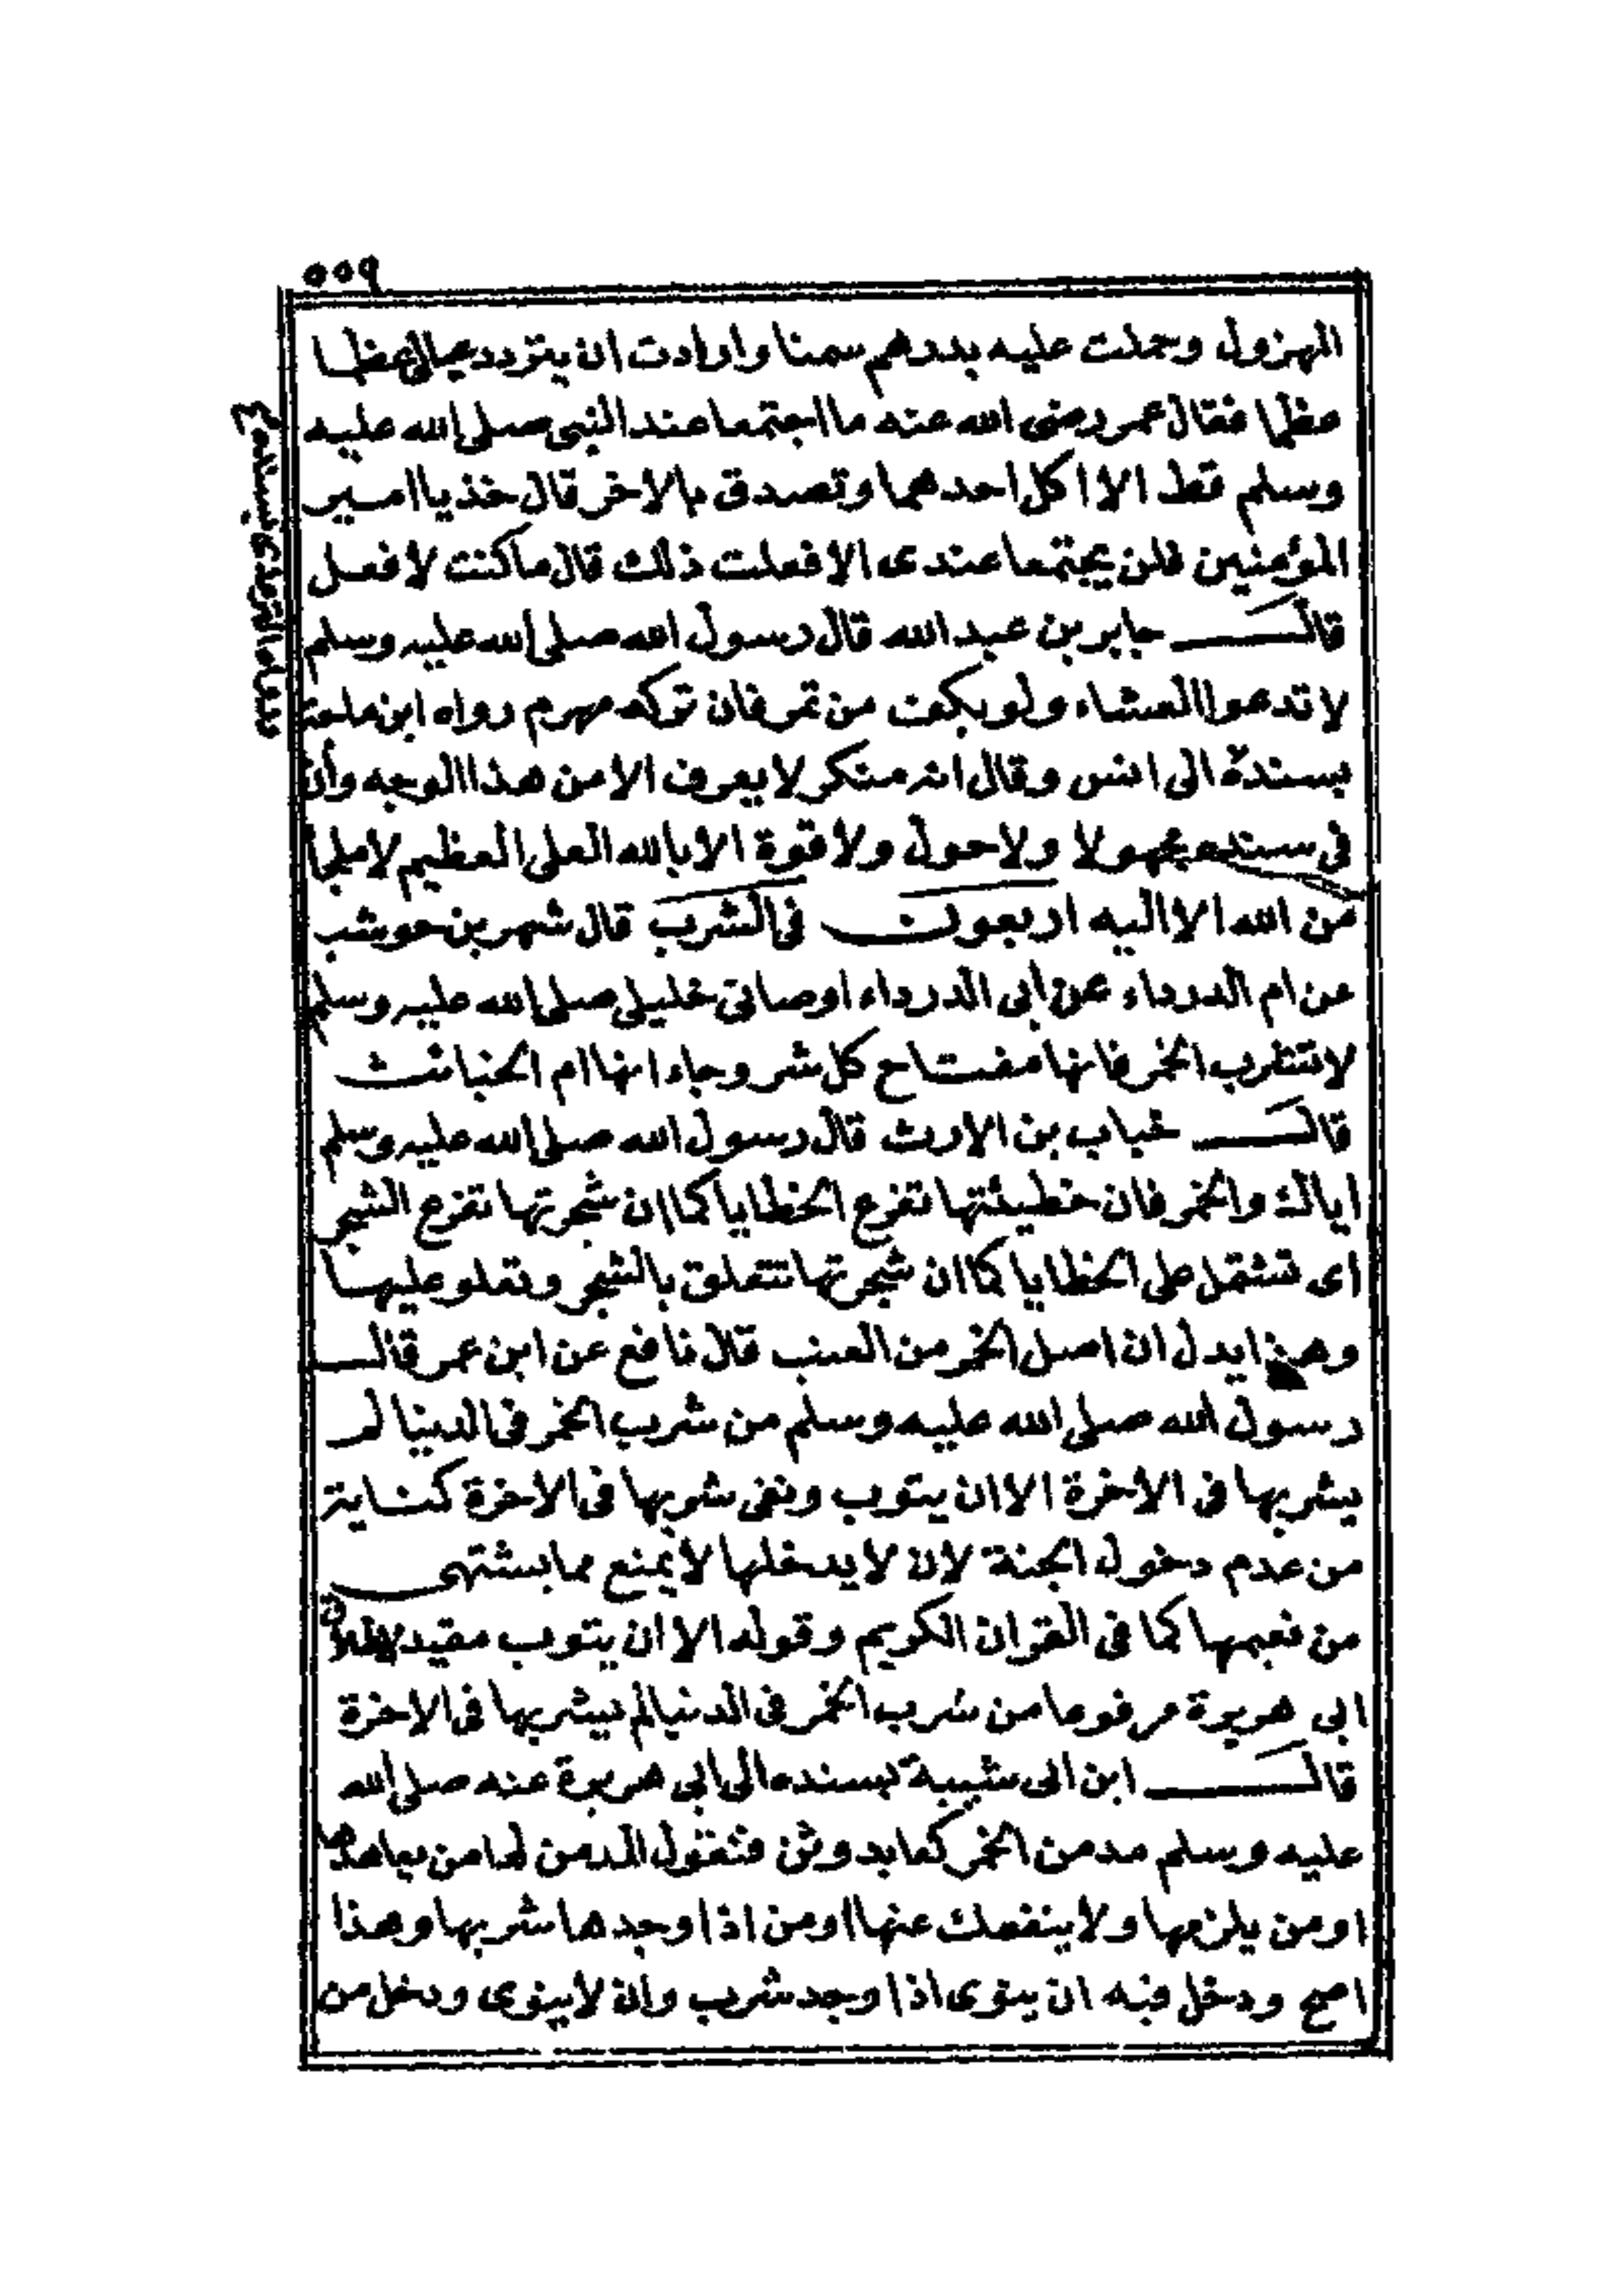 ٥٥٩
المهزول وحملت عليه بدرهم سمنا وارادت ان يتردد عيالى عظما
عظما فقال عمر رضى الله عنه ما اجتمعا عند النبى صلى الله عليه
وسلم قط الا اكل احدهما وتصدق بالاخر قال خذ يا امير
المؤمنين فلن يجتمعا عندى الا فعلت ذلك قال ما كنت لافعل
قال جابر بن عبد الله قال رسول الله صلى الله عليه وسلم
لا تدعوا العشاء ولو بكف من تمر فان تركه مهرم رواه ابن ماجة
بسنده الى انس وقال انه منكر لا يعرف الا من هذا الوجه وأن
فى سنده مجهولا ولا حول ولا قوة الا بالله العلى العظيم لا ملجا
من الله الا اليه اربعون فى الشرب قال شهر بن حوشب
عن ام الدرداء عن أبى الدرداء اوصانى خليلى صلى الله عليه وسلم
لا تقرب الخمر فانها مفتاح كل شر وجاء انها ام الخبائث
قال خباب بن الارث قال رسول الله صلى الله عليه وسلم
اياك والخمر فان خطيئتها تفزع الخطايا كما ان شجرتها تفزع الشجر
اى تشتمل على الخطايا كما ان شجرتها تتعلق بالشجر وتعلو عليها
وهذا يدل ان اصل الخمر من العنب قال نافع عن ابن عمر قال
رسول الله صلى الله عليه وسلم من شرب الخمر فى الدنيا لم
يشربها فى الاخرة الا ان يتوب ونفى شربها فى الاخرة كناية
من عدم دخول الجنة لان لا يدخلها لا يمنع مما يشتهى
من نعيمها كما فى القران الكريم وقوله الا ان يتوب مقيد لاطلاق
ابى هريرة مرفوعا من شرب الخمر فى الدنيا لم يشربها فى الاخرة
قال ابن ابى شيبة بسنده الى ابى هريرة عنه صلى الله
عليه وسلم مدمن الخمر كعابد وثن فنقول المدمن لها من يعاهدها
او من يلزمها ولا ينفصك عنها او من اذا وجدها شربها وهذا
اصح ودخل فيه ان ينوى اذا وجد شرب وان لا ينوى ودخل من